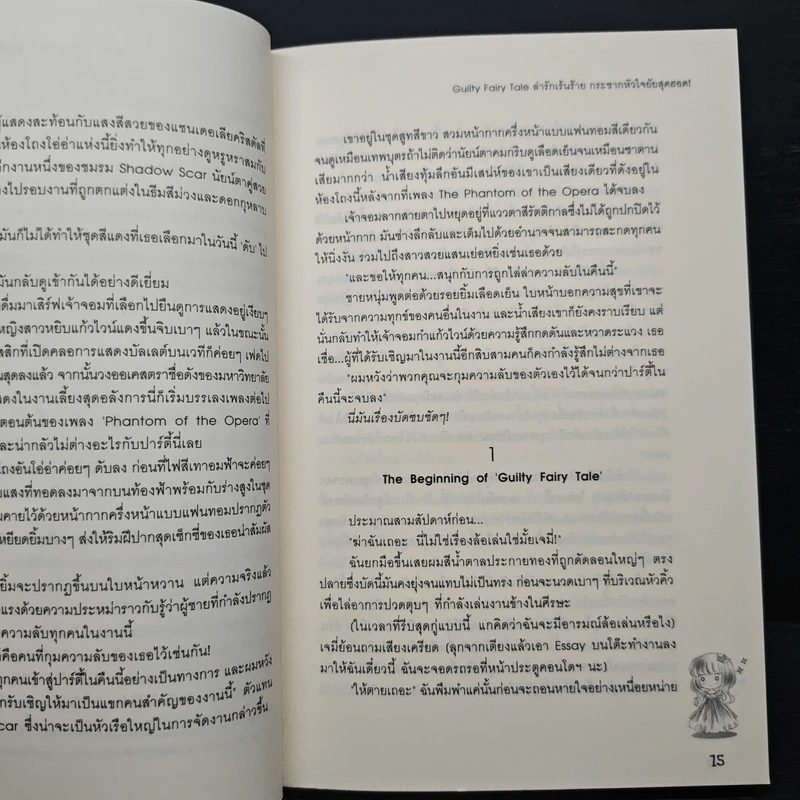 ผู้แสดงสะท้อนกับแสงสีสวยของแชนเดอเลียคริสตัลที่
ห้องโถงโอ่อ่าแห่งนี้ยิ่งทำให้ทุกอย่างดูหรูหราสมกับ
งานหนึ่งของชมรม Shadow Scar นัยน์ตาคู่สวย
ไปรอบงานที่ถูกตกแต่งในธีมสีม่วงและดอกกุหลาบ
มันก็ไม่ได้ทำให้ชุดสีแดงที่เธอเลือกมาในวันนี้ 'ดับ' ไป
มันกลับดูเข้ากันได้อย่างดีเยี่ยม
ดื่มมาเสิร์ฟเจ้าจอมที่เลือกไปยืนดูการแสดงอยู่เงียบๆ
หญิงสาวหยิบแก้วไวน์แดงขึ้นจิบเบาๆ แล้วในขณะนั้น
สสิกที่เปิดคลอการแสดงบัลเลต์บนเวทีก็ค่อยๆ เฟดไป
นสุดลงแล้ว จากนั้นวงออเคสตราชื่อดังของมหาวิทยาลัย
แสดงในงานเลี้ยงสุดอลังการนี้ก็เริ่มบรรเลงเพลงต่อไป
ตอนต้นของเพลง 'Phantom of the Opera' ที่
และน่ากลัวไม่ต่างอะไรกับปาร์ตี้นี้เลย
โถงอันโอ่อ่าค่อยๆ ดับลง ก่อนที่ไฟสีเทาอมฟ้าจะค่อยๆ
ยแสงที่ทอดลงมาจากบนท้องฟ้าพร้อมกับร่างสูงในชุด
มคายไว้ด้วยหน้ากากครึ่งหน้าแบบแฟนทอมปรากฏตัว
หยียดยิ้มบางๆ ส่งให้ริมฝีปากสุดเซ็กซี่ของเธอน่าสัมผัส
ยิ้มจะปรากฏขึ้นบนใบหน้าหวาน แต่ความจริงแล้ว
แรงด้วยความประหม่าราวกับรู้ว่าผู้ชายที่กำลังปรากฏ
ความลับทุกคนในงานนี้
คือคนที่กุมความลับของเธอไว้เช่นกัน!
ทุกคนเข้าสู่ปาร์ตี้ในคืนนี้อย่างเป็นทางการ และผมหวัง
กรับเชิญให้มาเป็นแขกคนสำคัญของงานนี้" ตัวแทน
Scar ซึ่งน่าจะเป็นหัวเรือใหญ่ในการจัดงานกล่าวขึ้น
Guilty Fairy Tale ล่ารักเร้นร้าย กระชากหัวใจยัยสุดฮอต!
เขาอยู่ในชุดสูทสีขาว สวมหน้ากากครึ่งหน้าแบบแฟนทอมสีเดียวกัน
จนดูเหมือนเทพบุตรถ้าไม่ติดว่านัยน์ตาคมกริบดูเลือดเย็นจนเหมือนซาตาน
เสียมากกว่า น้ำเสียงทุ้มลึกอันมีเสน่ห์ของเขาเป็นเสียงเดียวที่ดังอยู่ใน
ห้องโถงนี้หลังจากที่เพลง The Phantom of the Opera ได้จบลง
เจ้าจอมลากสายตาไปหยุดอยู่ที่แววตาสีรัตติกาลซึ่งไม่ได้ถูกปกปิดไว้
ด้วยหน้ากาก มันช่างลึกลับและเต็มไปด้วยอำนาจจนสามารถสะกดทุกคน
ให้นิ่งงัน รวมไปถึงสาวสวยแสนเย่อหยิ่งเช่นเธอด้วย
"และขอให้ทุกคน...สนุกกับการถูกไล่ล่าความลับในคืนนี้"
ชายหนุ่มพูดต่อด้วยรอยยิ้มเลือดเย็น ใบหน้าบอกความสุขที่เขาจะ
ได้รับจากความทุกข์ของคนอื่นในงาน และน้ำเสียงเขาก็ยังคงราบเรียบ แต่
นั่นกลับทำให้เจ้าจอมกำแก้วไวน์ด้วยความรู้สึกกดดันและหวาดระแวง เธอ
เชื่อ...ผู้ที่ได้รับเชิญมาในงานนี้อีกสิบสามคนก็คงกำลังรู้สึกไม่ต่างจากเธอ
"ผมหวังว่าพวกคุณจะกุมความลับของตัวเองไว้ได้จนกว่าปาร์ตี้ใน
คืนนี้จะจบลง"
นี่มันเรื่องบัดซบชัดๆ!
1
The Beginning of 'Guilty Fairy Tale'
ประมาณสามสัปดาห์ก่อน...
"ฆ่าฉันเถอะ นี่ไม่ใช่เรื่องล้อเล่นใช่มั้ยเจมี่!"
ฉันยกมือขึ้นเสยผมสีน้ำตาลประกายทองที่ถูกดัดลอนใหญ่ๆ ตรง
ปลายซึ่งบัดนี้มันคงยุ่งจนแทบไม่เป็นทรง ก่อนจะนวดเบาๆ ที่บริเวณหัวคิ้ว
เพื่อไล่อาการปวดตุบๆ ที่กำลังเล่นงานข้างในศีรษะ
(ในเวลาที่รีบสุดกู่แบบนี้ แกคิดว่าฉันจะมีอารมณ์ล้อเล่นหรือไง)
เจมี่ย้อนถามเสียงเครียด (ลุกจากเตียงแล้วเอา Essay บนโต๊ะทำงานลง
มาให้ฉันเดี๋ยวนี้ ฉันจะจอดรถรอที่หน้าประตูคอนโดฯ นะ)
"ให้ตายเถอะ" ฉันพึมพำแค่นั้นก่อนจะถอนหายใจอย่างเหนื่อยหน่าย
15